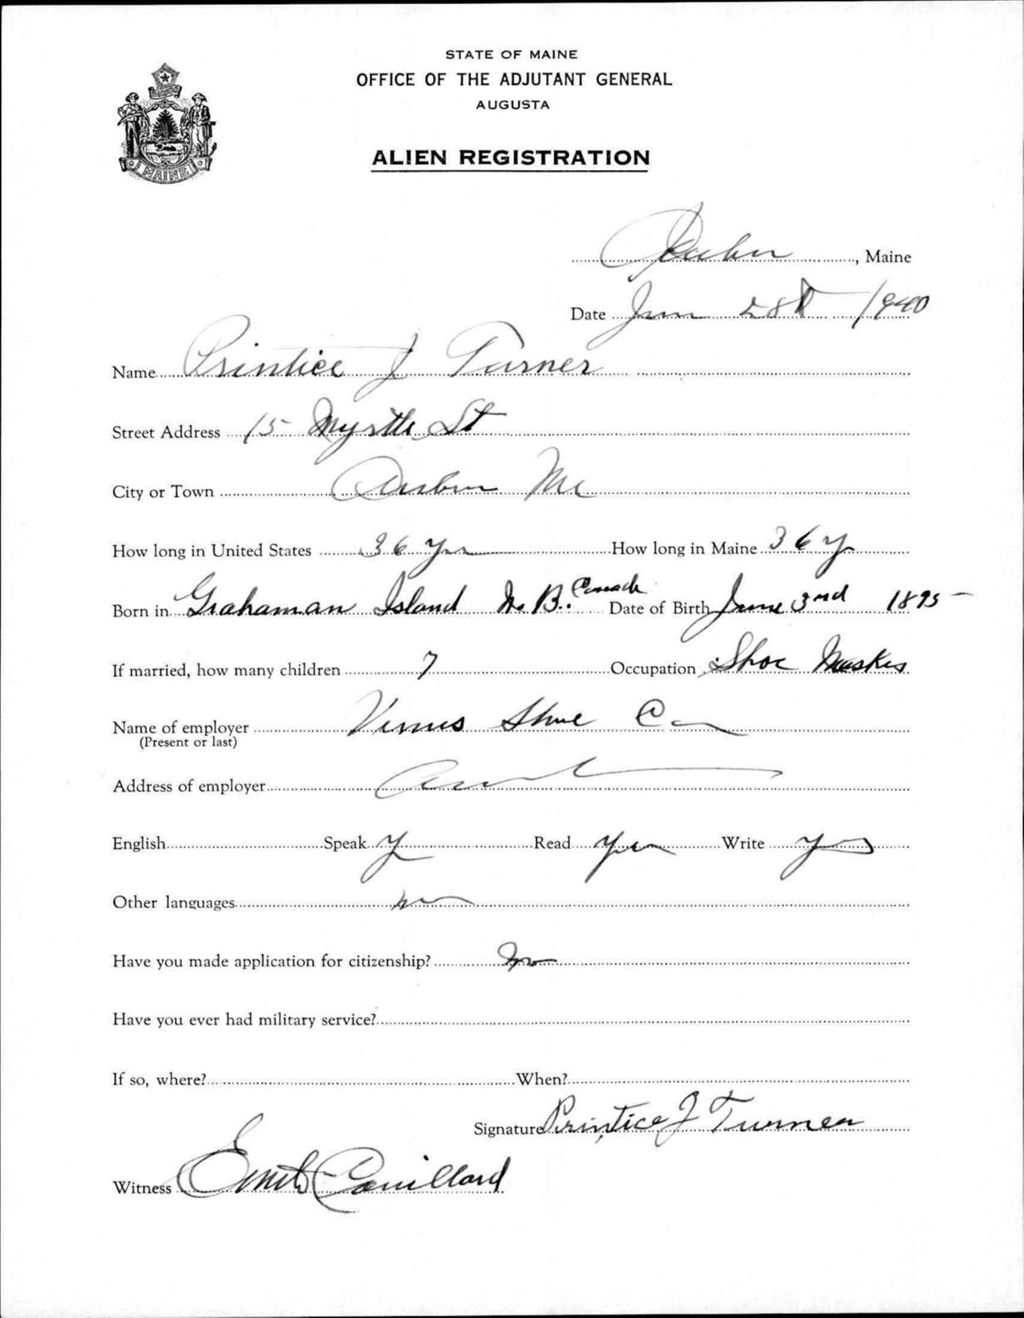 STATE OF MAINE
OFFICE OF THE ADJUTANT GENERAL
AUGUSTA
MAINE
ALIEN REGISTRATION
Auburn, Maine
Date June 28th 1940
Name Printice J Turner
Street Address 15 Myrtle St
City or Town Auburn Me
How long in United States 36 yrs How long in Maine 36 y
Born in Grahaman Island N. B. Canada Date of Birth June 3rd 1895
If married, how many children 7 Occupation Shoe
Name of employer Venus Shoe Co
(Present or last)
Address of employer
English Speak Y Read Yes Write Yes
Other languages no
Have you made application for citizenship? No
Have you ever had military service?
If so, where? When?
Signature Printice J Turner
Witness